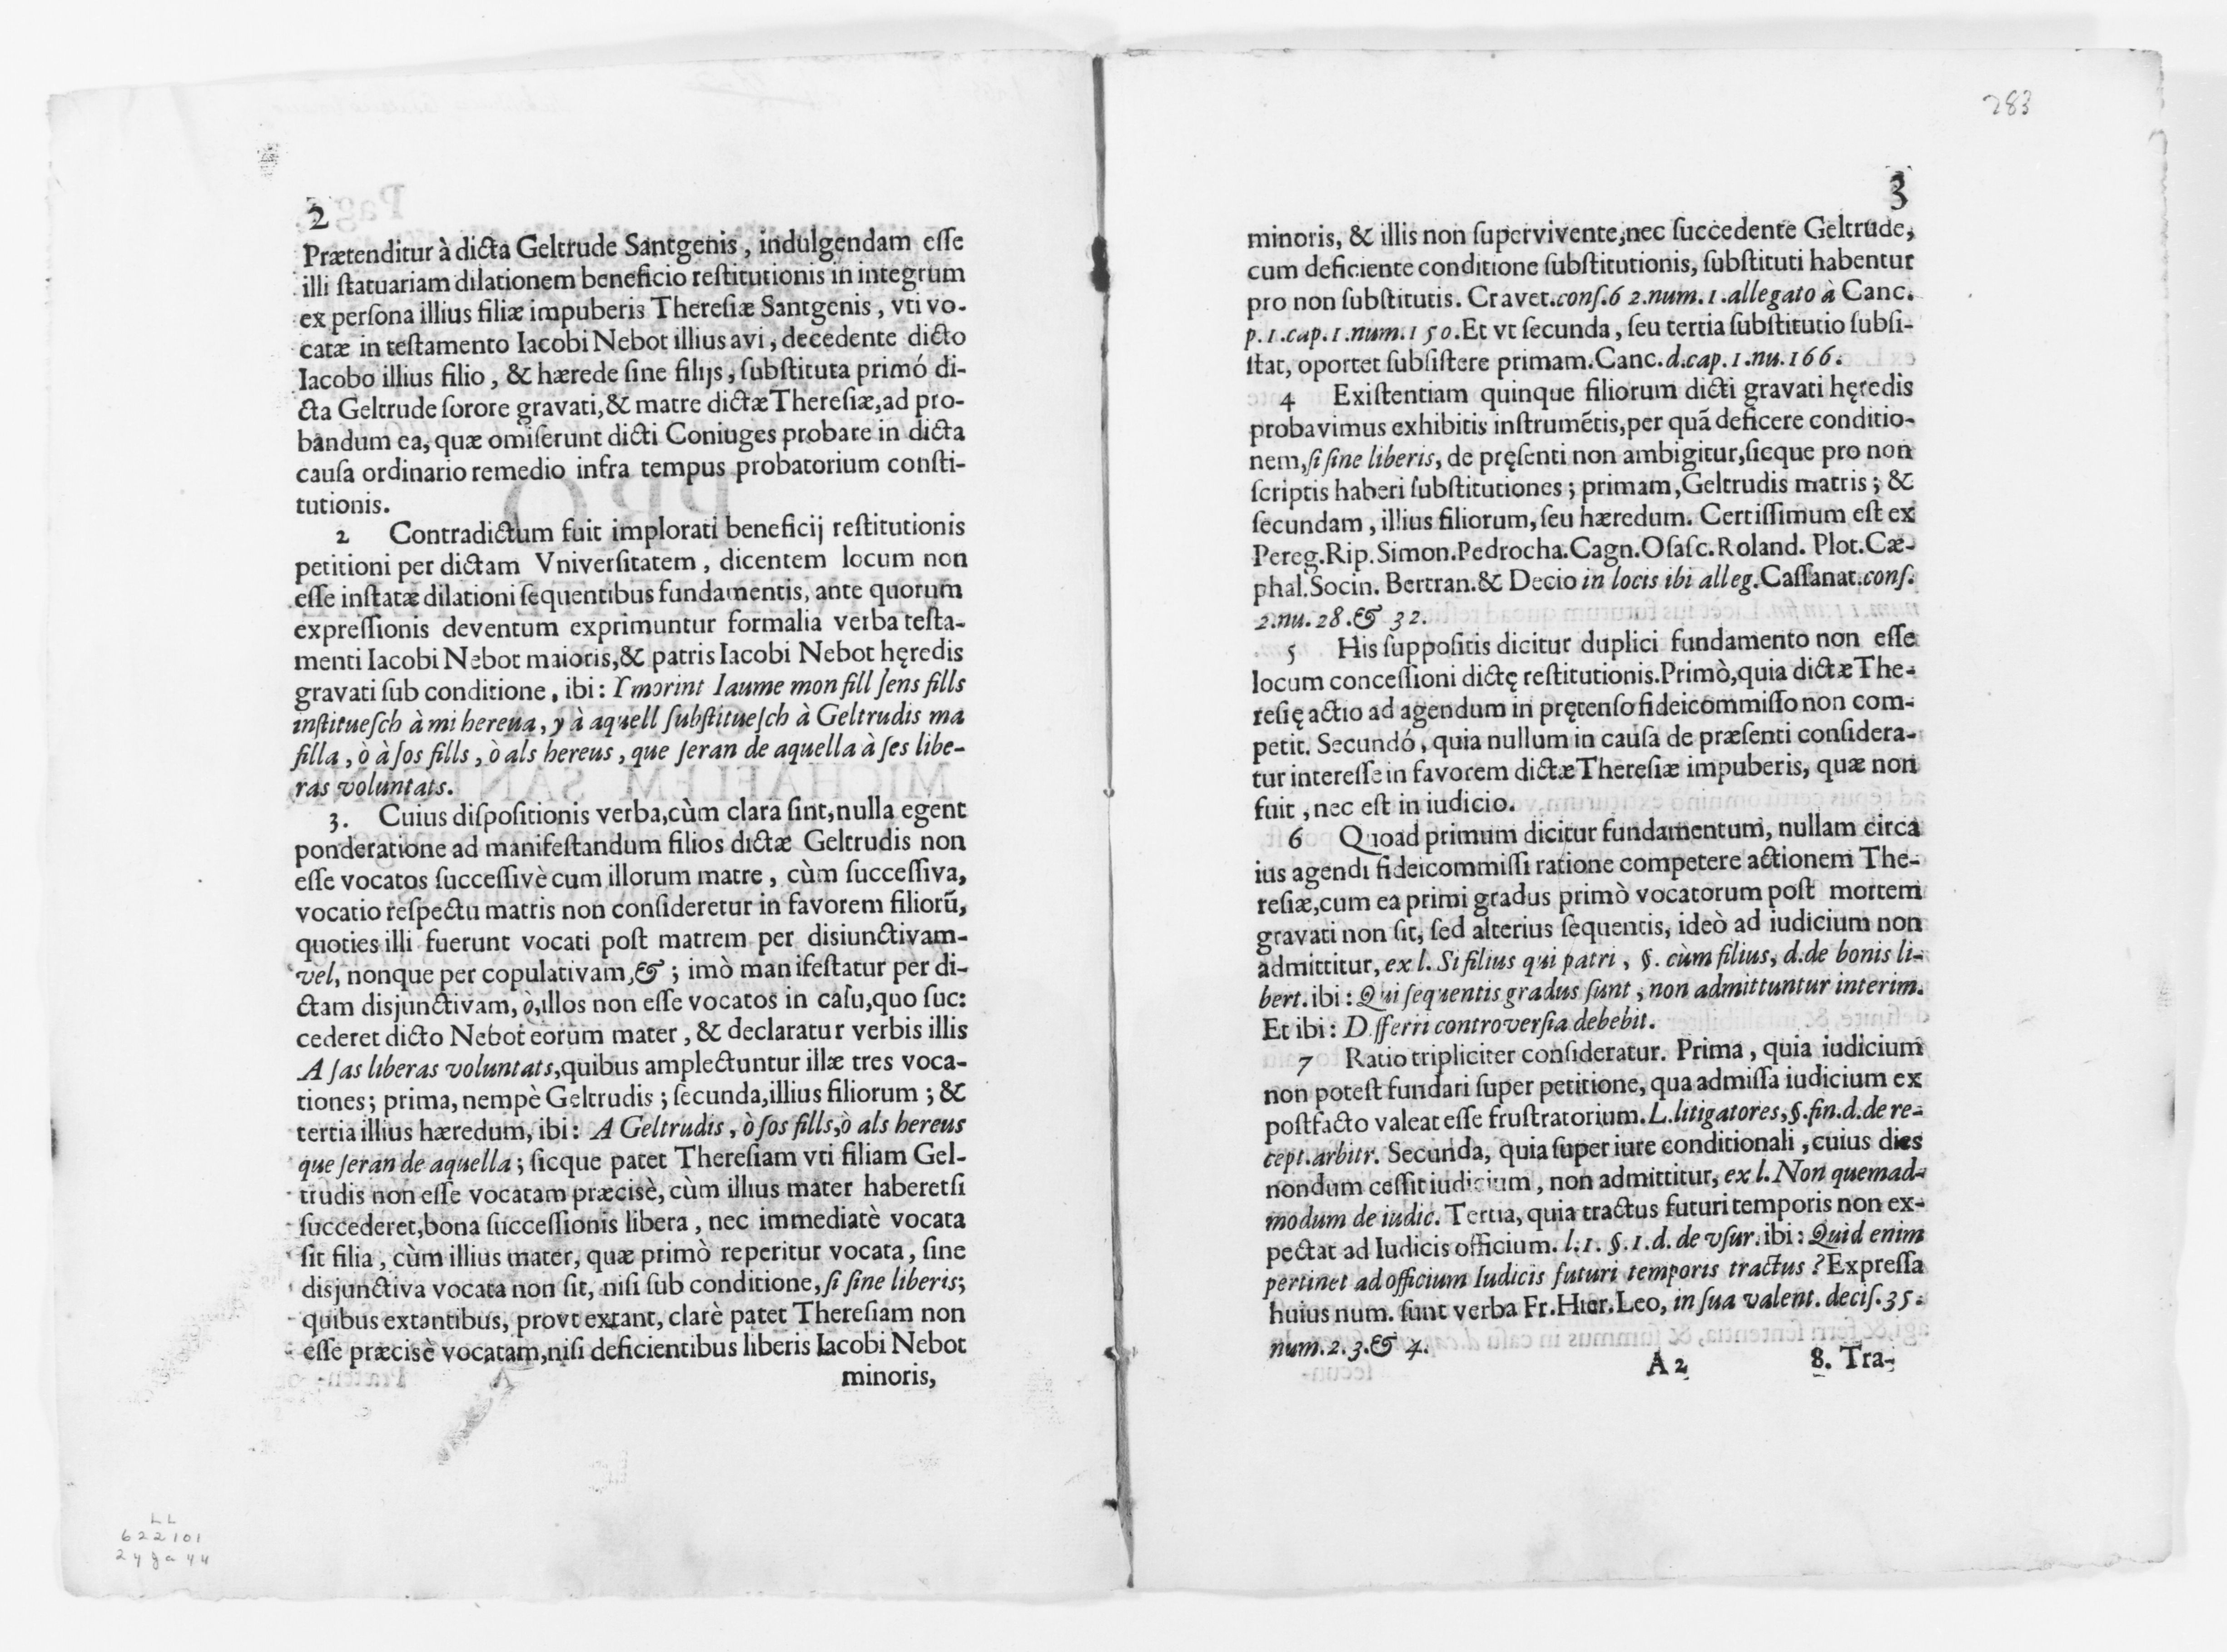 2
Prætenditur à dicta Geltrude Santgenis, indulgendam eſſe
illi ſtatuariam dilationem beneficio reſtitutionis in integrum
ex perſona illius filiæ impuberis Thereſiæ Santgenis, vti vo-
catæ in teſtamento Iacobi Nebot illius avi, decedente dicto
Iacobo illius filio, & hærede ſine filijs, ſubſtituta primó di-
cta Geltrude ſorore gravati, & matre dictæ Thereſiæ, ad pro-
bandum ea, quæ omiſerunt dicti Coniuges probare in dicta
cauſa ordinario remedio infra tempus probatorium conſti-
tutionis.
2 Contradictum fuit implorati beneficij reſtitutionis
petitioni per dictam Vniverſitatem, dicentem locum non
eſſe inſtatæ dilationi ſequentibus fundamentis, ante quorum
expreſſionis deventum exprimuntur formalia verba teſta-
menti Iacobi Nebot maioris, & patris Iacobi Nebot hęredis
gravati ſub conditione, ibi: Y morint Iaume mon fill ſens fills
inſtitueſch à mi hereua, y à aquell ſubſtitueſch à Geltrudis ma
filla, ò à ſos fills, ò als hereus, que ſeran de aquella à ſes libe-
ras voluntats.
3. Cuius diſpoſitionis verba, cùm clara ſint, nulla egent
ponderatione ad manifeſtandum filios dictæ Geltrudis non
eſſe vocatos ſucceſſivè cum illorum matre, cùm ſucceſſiva,
vocatio reſpectu matris non conſideretur in favorem filiorũ,
quoties illi fuerunt vocati poſt matrem per disiunctivam-
vel, nonque per copulativam, &; imò manifeſtatur per di-
ctam disjunctivam, ò, illos non eſſe vocatos in caſu, quo ſuc:
cederet dicto Nebot eorum mater, & declaratur verbis illis
A ſas liberas voluntats, quibus amplectuntur illæ tres voca-
tiones; prima, nempè Geltrudis; ſecunda, illius filiorum; &
tertia illius hæredum, ibi: A Geltrudis, ò ſos fills, ò als hereus
que ſeran de aquella; ſicque patet Thereſiam vti filiam Gel-
trudis non eſſe vocatam præcisè, cùm illius mater haberet ſi
ſuccederet, bona ſucceſſionis libera, nec immediatè vocata
ſit filia, cùm illius mater, quæ primò reperitur vocata, ſine
disjunctiva vocata non ſit, niſi ſub conditione, ſi ſine liberis;
quibus extantibus, provt extant, clarè patet Thereſiam non
eſſe præcisè vocatam, niſi deficientibus liberis Iacobi Nebot
minoris,
LL
622101
24 ga 44
283
3
minoris, & illis non ſupervivente, nec ſuccedente Geltrude,
cum deficiente conditione ſubſtitutionis, ſubſtituti habentur
pro non ſubſtitutis. Cravet. conſ. 6 2. num. 1. allegato à Canc.
p. 1. cap. 1. num. 1 5 0. Et vt ſecunda, ſeu tertia ſubſtitutio ſubſi-
ſtat, oportet ſubſiſtere primam. Canc. d. cap. 1. nu. 166.
4 Exiſtentiam quinque filiorum dicti gravati hęredis
probavimus exhibitis inſtrumẽtis, per quã deficere conditio-
nem, ſi ſine liberis, de pręſenti non ambigitur, ſicque pro non
ſcriptis haberi ſubſtitutiones; primam, Geltrudis matris; &
ſecundam, illius filiorum, ſeu hæredum. Certiſſimum eſt ex
Pereg. Rip. Simon. Pedrocha. Cagn. Oſaſc. Roland. Plot. Cæ-
phal. Socin. Bertran. & Decio in locis ibi alleg. Caſſanat. conſ.
2. nu. 28. & 32.
5 His ſuppoſitis dicitur duplici fundamento non eſſe
locum conceſſioni dictę reſtitutionis. Primò, quia dictæ The-
reſię actio ad agendum in prętenſo fideicommiſſo non com-
petit. Secundó, quia nullum in cauſa de præſenti conſidera-
tur intereſſe in favorem dictæ Thereſiæ impuberis, quæ non
fuit, nec eſt in iudicio.
6 Quoad primum dicitur fundamentum, nullam circa
ius agendi fideicommiſſi ratione competere actionem The-
reſiæ, cum ea primi gradus primò vocatorum poſt mortem
gravati non ſit, ſed alterius ſequentis, ideò ad iudicium non
admittitur, ex l. Si filius qui patri, §. cùm filius, d. de bonis li-
bert. ibi: Qui ſequentis gradus ſunt, non admittuntur interim.
Et ibi: D fferri controverſia debebit.
7 Ratio tripliciter conſideratur. Prima, quia iudicium
non poteſt fundari ſuper petitione, qua admiſſa iudicium ex
poſtfacto valeat eſſe fruſtratorium. L. litigatores, §. fin. d. de re-
cept. arbitr. Secunda, quia ſuper iure conditionali, cuius dies
nondum ceſſit iudicium, non admittitur, ex l. Non quemad-
modum de iudic. Tertia, quia tractus futuri temporis non ex-
pectat ad Iudicis officium. l. 1. §. 1. d. de vſur. ibi: Quid enim
pertinet ad officium Iudicis futuri temporis tractus? Expreſſa
huius num. ſunt verba Fr. Hier. Leo, in ſua valent. deciſ. 35.
num. 2. 3. & 4.
A 2 8. Tra-